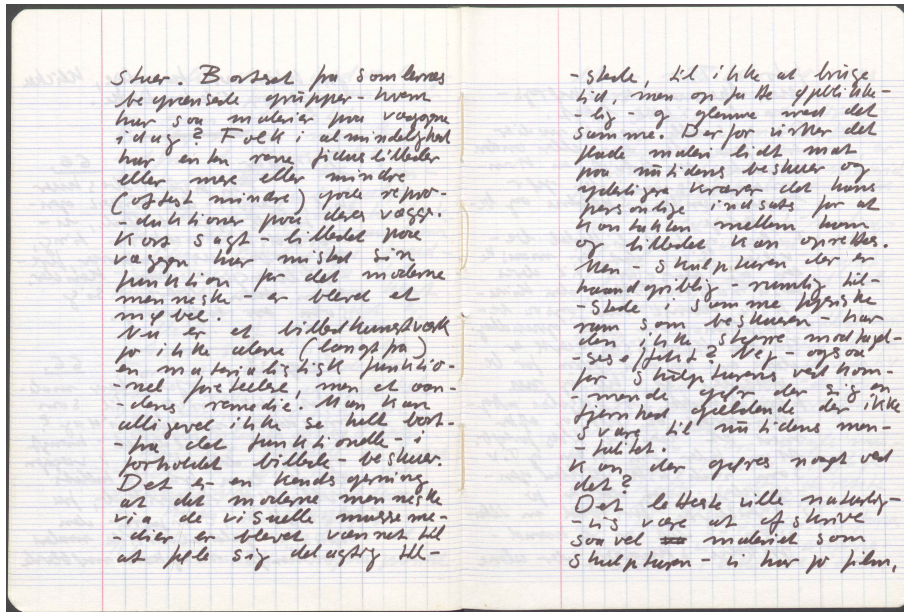 stuer. Bortset fra somlernes
begrænsede grupper - hvem
har saa malerier paa væggene
idag? Folk i almindelighed
har enten rene fidusbilleder
eller mere eller mindre
(oftest mindre) gode repro-
-duktioner paa deres vægge.
Kort sagt - billedet paa
væggen har mistet sin
funktion for det moderne
menneske - er blevet et
møbel.
Nu er et billedkunstværk
jo ikke alene (langt fra)
en materialistisk funktio-
-nel foreteelse, men et aan-
-dens remedie. Man kan
alligevel ikke se helt bort-
-fra det funktionelle - i
forholdet billede - beskuer.
Det er en kendsgerning
at det moderne menneske
via de visuelle masseme-
-dier er blevet vænnet til
at føle sig delagtig till-
-stede, til ikke at bruge
tid, men opfatte øjeblikke-
-lig - og glemme med det
samme. Derfor virker det
flade maleri lidt mat
paa nutidens beskuer og
yderligere kræver det hans
personlige indsats for at
kontakten mellem ham
og billedet kan oprettes.
Men - skulpturen der er
haandgribelig - rumlig til-
-stede i samme fysiske
rum som beskueren - har
den ikke større modtagel-
-seseffekt? Nej - ogsaa
for skulpturens vedkom-
-mende gør der sig en
fjernhed gældende der ikke
svare til nutidens men-
-talitet.
Kan der gøres noget ved
det?
Det letteste ville naturlig-
-vis være at afskrive
saavel maleriet som
skulpturen - vi har jo film,